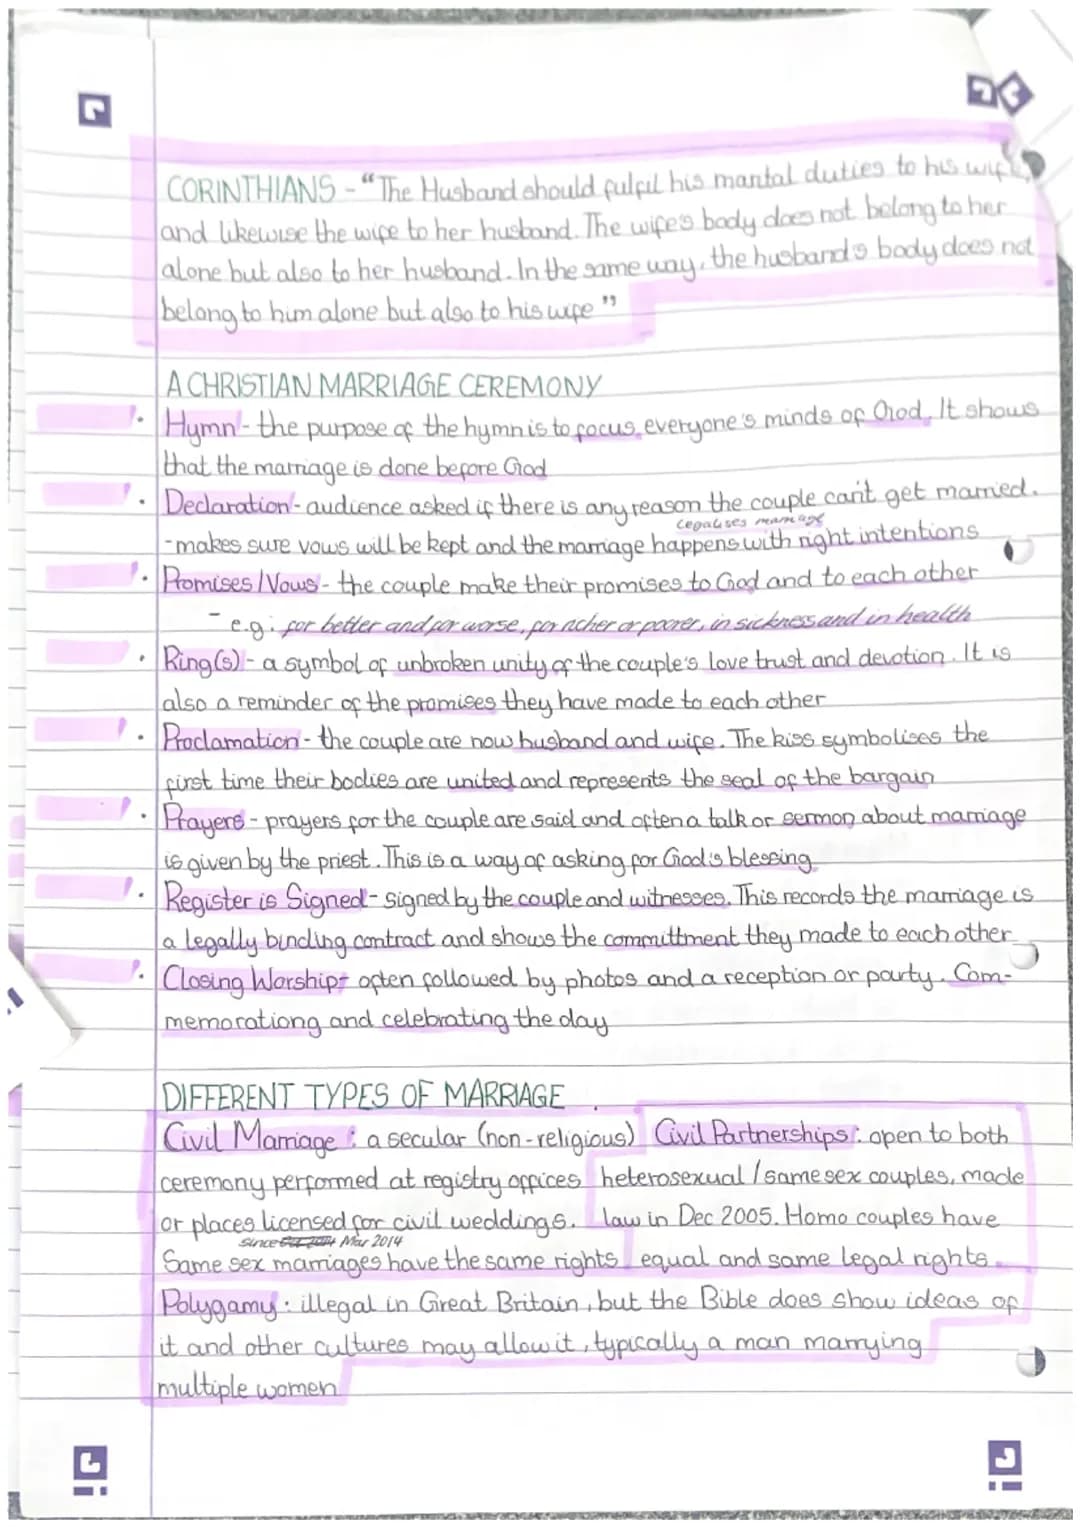 CORINTHIANS - "The Husband should fulfil his marital duties to his wife,
and likewise the wife to her husband. The wife's body does not belong to her
alone but also to her husband. In the same way, the husband's body does not
belong to him alone but also to his wife"
A CHRISTIAN MARRIAGE CEREMONY
• Hymn - the purpose of the hymn is to focus everyone's minds of God. It shows
that the marriage is done before God
• Declaration - audience asked if there is any reason the couple can't get married.
legalises marriage
- makes sure vows will be kept and the marriage happens with right intentions
• Promises/Vows - the couple make their promises to God and to each other
- e.g: for better and for worse, for richer or poorer, in sickness and in health
• Ring(s) - a symbol of unbroken unity of the couple's love trust and devotion. It is
also a reminder of the promises they have made to each other
• Proclamation - the couple are now husband and wife. The kiss symbolises the
first time their bodies are united and represents the seal of the bargain
• Prayers - prayers for the couple are said and often a talk or sermon about marriage
is given by the priest. This is a way of asking for God's blessing.
• Register is Signed - signed by the couple and witnesses. This records the marriage is
a legally binding contract and shows the committment they made to each other
• Closing Worship - often followed by photos and a reception or party. Com-
memorationg and celebrating the day
DIFFERENT TYPES OF MARRIAGE
Civil Marriage: a secular (non-religious)
ceremony performed at registry offices
or places licensed for civil weddings.
since Mar 2014
Same sex marriages have the same rights
Civil Partnerships: open to both
heterosexual/same sex couples, made
law in Dec 2005. Homo couples have
equal and same legal rights.
Polygamy: illegal in Great Britain, but the Bible does show ideas of
it and other cultures may allow it, typically a man marrying
multiple women